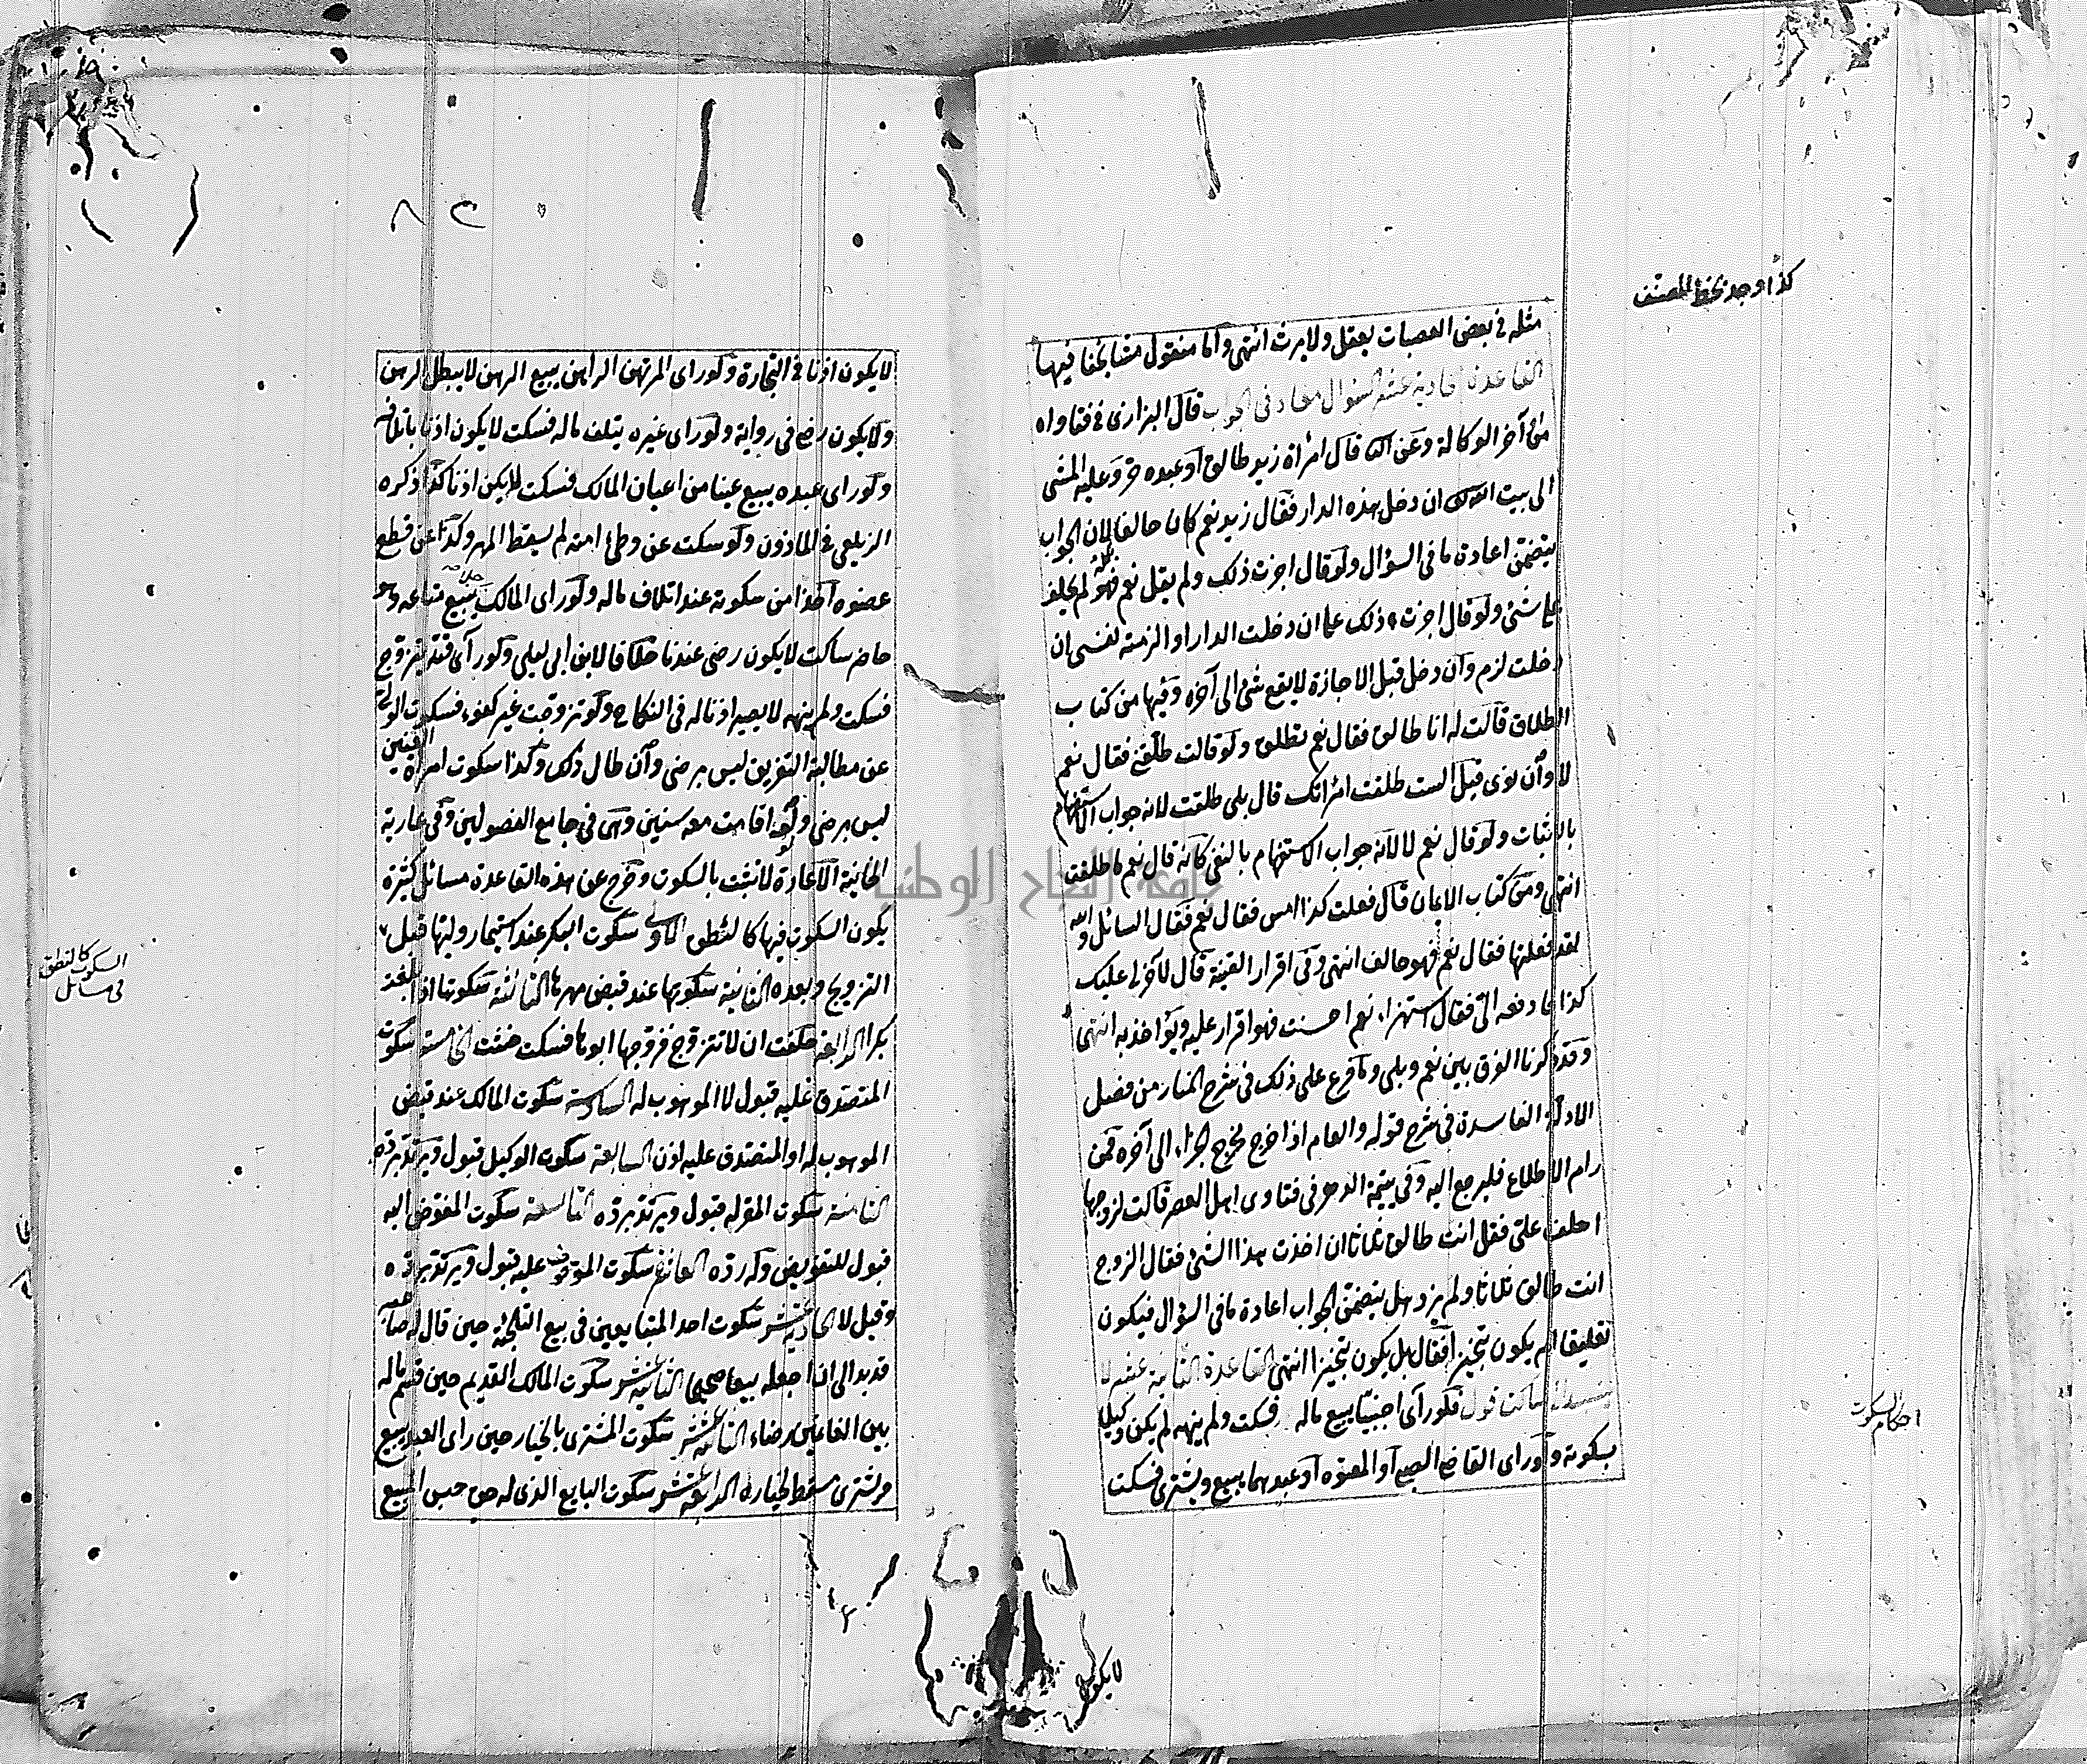 كذا وجد بخط المصنف
مثله في بعض العصبات يعقل ولا يرث انتهى واما منقول مشايخنا فيها
القاعدة الحادية عشر السؤال معاد في الجواب قال البزازى في فتاواه
من آخر الوكالة وعن الثا قال امرأة زيد طالق او عبده حر وعليه المشى
الى بيت الله ان دخل هذه الدار فقال زيد نعم كان حالفا لان الجواب
يتضمن اعادة ما في السؤال ولو قال اجزت ذلك ولم يقل نعم فهو لم يحلف
على شئ ولو قال اجزت ذلك على ان دخلت الدار او الزمته نفسى ان
دخلت لزم وان دخل قبل الاجازة لا يقع شئ الى آخره وفيها من كتاب
الطلاق قالت له انا طالق فقال نعم تطلق ولو قالت طلقنى فقال نعم
لا وان نوى قيل الست طلقت امرأتك قال بلى طلقت لانه جواب الاستفهام
بالاثبات ولو قال نعم لا لانه جواب الاستفهام بالنفى كانه قال نعم ما طلقت
انتهى ومن كتاب الايمان قال فعلت كذا امس فقال نعم فقال السائل والله
لقد فعلتها فقال نعم فهو حالف انتهى وفى اقرار القنية قال لآخر لى عليك
كذا فادفعه الى فقال استهزاء نعم احسنت فهو اقرار عليه ويؤاخذ به انتهى
وقد ذكرنا الفرق بين نعم وبلى وما فرع على ذلك فى شرح المنار من فصل
الادلة الفاسدة فى شرح قوله والعام اذا خرج مخرج الجزاء الى آخره فمن
رام الاطلاع فليرجع اليه وفى يتيمة الدهر فى فتاوى اهل العصر قالت لزوجها
احلف على فقل انت طالق ثلاثا ان اخذت هذا الشئ فقال الزوج
انت طالق ثلاثا ولم يزد هل يتضمن الجواب اعادة ما في السؤال فيكون
تعليقا ام يكون تنجيزا فقال بل يكون تنجيزا انتهى القاعدة الثانية عشر لا
ينسب الى ساكت قول فلو رآى اجنبيا يبيع ماله فسكت ولم ينهه لم يكن وكيلا
بسكوته ولو راى القاضى الصبى او المعتوه او عبدهما يبيع ويشترى فسكت
احكام السكوت
لا يكون
لا يكون اذنا فى التجارة ولو راى المرتهن الراهن يبيع الرهن لا يبطل الرهن
ولا يكون رضى فى رواية ولو راى غيره يتلف ماله فسكت لا يكون اذنا باتلافه
ولو راى عبده يبيع عينا من اعيان المالك فسكت لم يكن اذنا كذا ذكره
الزيلعى فى المأذون ولو سكت عن وطئ امته لم يسقط المهر وكذا عن قطع
عضوه آخذا من سكوته عند اتلاف ماله ولو راى المالك رجلا يبيع متاعه وهو
حاضر ساكت لا يكون رضى عندنا خلافا لابن ابى ليلى ولو رآى قنه يتزوج
فسكت ولم ينهه لا يصير اذنا له فى النكاح ولو تزوجت غير كفوء فسكوت الولى
عن مطالبة التفريق ليس برضى وان طال ذلك وكذا سكوت امرأة العنين
ليس برضى ولو اقامت معه سنين وهى فى جامع الفصولين وفى عارية
الخانية الاعارة لا تثبت بالسكوت وخرج عن هذه القاعدة مسائل كثيرة
يكون السكوت فيها كالنطق الاولى سكوت البكر عند استيمار وليها قبل
التزويج وبعده الثانية سكوتها عند قبض مهرها الثالثة سكوتها اذا بلغت
بكرا الرابعة حلفت ان لا تتزوج فزوجها ابوها فسكتت حنثت الخامسة سكوت
المتصدق عليه قبول لا الموهوب له السادسة سكوت المالك عند قبض
الموهوب له او المتصدق عليه اذن السابعة سكوت الوكيل قبول ويرتد برده
الثامنة سكوت المقر له قبول ويرتد برده التاسعة سكوت المفوض اليه
قبول للتفويض وله رده العاشرة سكوت الموقوف عليه قبول ويرتد برده
وقيل لا الحادية عشر سكوت احد المتبايعين فى بيع التلجئة حين قال له صاحبه
قد بدا لى ان اجعله بيعا صحيحا الثانية عشر سكوت المالك القديم حين قسم ماله
بين الغانمين رضاء الثالثة عشر سكوت المشترى بالخيار حين راى العبد يبيع
ويشترى مسقط لخياره الرابعة عشر سكوت البايع الذى له حق حبس المبيع
السكوت كالنطق
فى مسائل
جامعة النجاح الوطنية